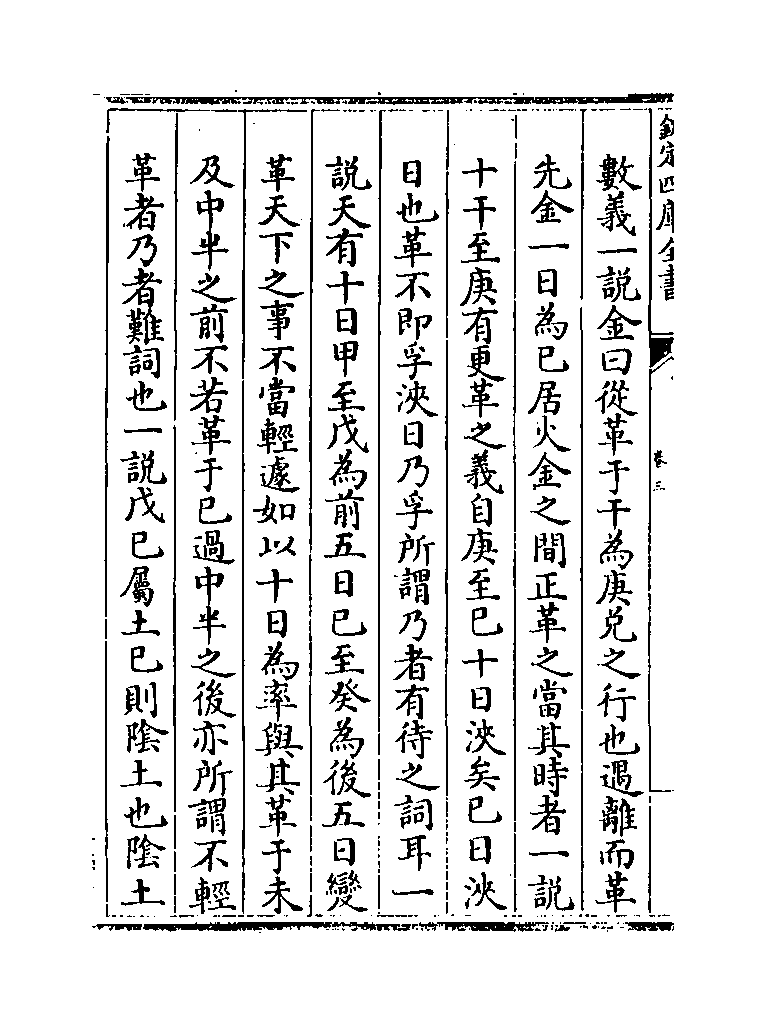 欽定四庫全書
卷三
數義一說金曰從革于干為庚兌之行也遇離而革
先金一日為巳居火金之間正革之當其時者一說
十干至庚有更革之義自庚至巳十日浹矣巳日浹
日也革不即孚浹日乃孚所謂乃者有待之詞耳一
説天有十日甲至戊為前五日巳至癸為後五日變
革天下之事不當輕遽如以十日為率與其革于未
及中半之前不若革于巳過中半之後亦所謂不輕
革者乃者難詞也一説戊巳屬土巳則陰土也陰土